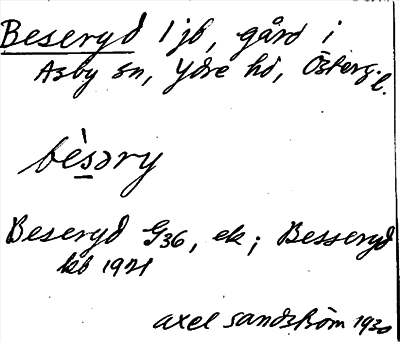 Beseryd 1 jb, gård i
Asby sn, Ydre hd, Österg. l.
bèsəry
Beseryd G36, ek; Besseryd
kb 1921
Axel Sandström 1930